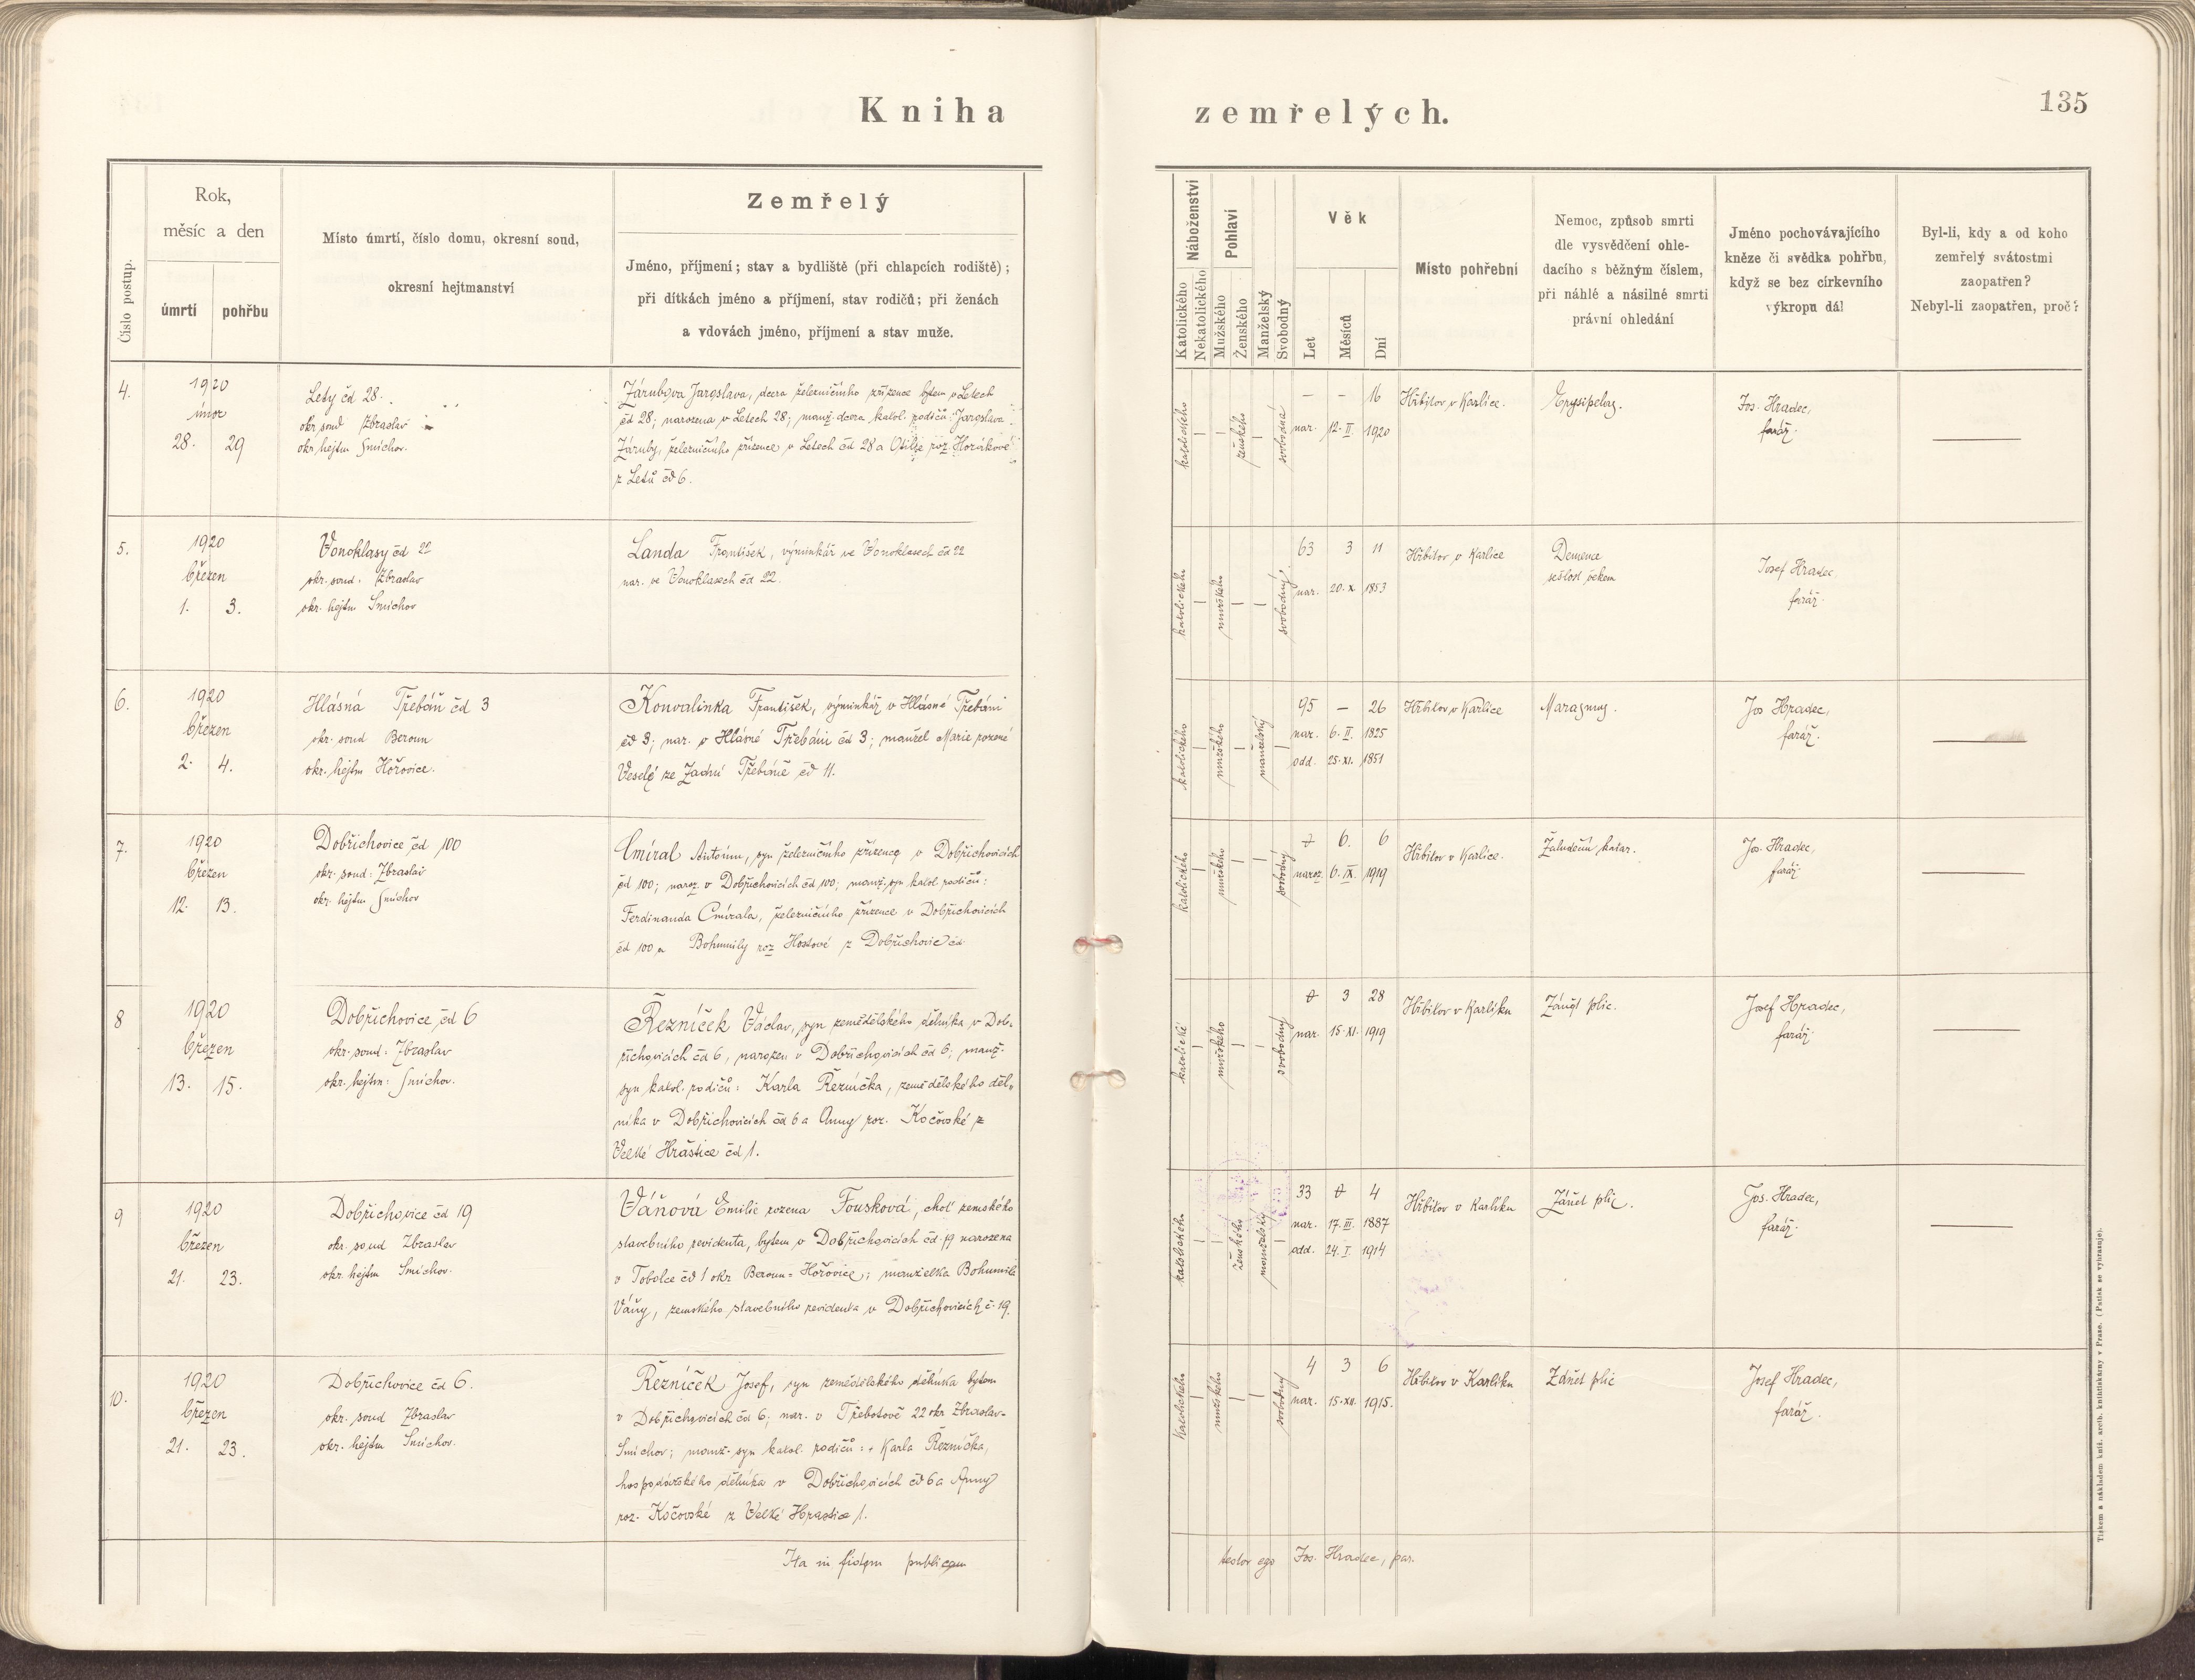 Kniha zemřelých.
135
Číslo postup.
Rok,
měsíc a den
úmrtí
pohřbu
Místo úmrtí, číslo domu, okresní soud,
okresní hejtmanství
Zemřelý
Jméno, příjmení; stav a bydliště (při chlapcích rodiště);
při dítkách jméno a příjmení, stav rodičů; při ženách
a vdovách jméno, příjmení a stav muže.
Náboženství
Katolického
Nekatolického
Pohlaví
Mužského
Ženského
Manželský
Svobodný
Věk
Let
Měsíců
Dní
Místo pohřební
Nemoc, způsob smrti
dle vysvědčení ohle-
dacího s běžným číslem,
při náhlé a násilné smrti
právní ohledání
Jméno pochovávajícího
kněze či svědka pohřbu,
když se bez církevního
výkropu dál
Byl-li, kdy a od koho
zemřelý svátostmi
zaopatřen?
Nebyl-li zaopatřen, proč?
4.
1920
únor
28. 29
Lety čd 28.
okr soud Zbraslav
okr hejtm Smíchov.
Zárubova Jaroslava, dcera železničního zřízence bytem v Letech
čd 28; narozena v Letech 28; manž. dcera katol. rodičů: Jaroslava
Záruby, železničního zřízence v Letech čd 28 a Otilie roz. Horákové
z Letů čd 6.
katolického
ženského
svobodná
– – 16
nar. 12. II. 1920
Hřbitov v Karlíce.
Erysipelas.
Jos. Hradec,
farář.
5.
1920
březen
1. 3.
Vonoklasy čd 22
okr. soud: Zbraslav
okr. hejtm Smíchov
Landa František, výminkář ve Vonoklasech čd 22
nar. ve Vonoklasech čd 22.
katolického
mužského
svobodný
63 3 11
nar. 20. X. 1853
Hřbitov v Karlíce
Demence
sešlost věkem
Josef Hradec,
farář.
6.
1920
březen
2. 4.
Hlásná Třebáň čd 3
okr. soud Beroun
okr. hejtm Hořovice.
Konvalinka František, výminkář v Hlásné Třebáni
čd 3; nar. v Hlásné Třebáni čd 3; manžel Marie rozené
Veselé ze Zadní Třebáně čd 11.
katolického
mužského
manželský
95 – 26
nar. 6. II. 1825
odd. 25. XI. 1851
Hřbitov v Karlíce
Marasmus.
Jos Hradec,
farář.
7.
1920
březen
12. 13.
Dobřichovice čd 100
okr. soud: Zbraslav
okr. hejtm Smíchov
Cmíral Antonín, syn železničního zřízence v Dobřichovicích
čd 100; naroz. v Dobřichovicích čd 100; manž. syn katol. rodičů:
Ferdinanda Cmírala, železničního zřízence v Dobřichovicích
čd 100 a Bohumily roz Hostové z Dobřichovic čd.
katolického
mužského
svobodný
6. 6
naroz. 6. IX. 1919
Hřbitov v Karlíce.
Žaludeční katar.
Jos. Hradec,
farář.
8
1920
březen
13. 15.
Dobřichovice čd 6
okr. soud: Zbraslav
okr. hejtm: Smíchov.
Řezníček Václav, syn zemědělského dělníka v Dob-
řichovicích čd 6, narozen v Dobřichovicích čd 6; manž.
syn katol. rodičů: Karla Řezníčka, zemědělského děl-
níka v Dobřichovicích čd 6 a Anny roz. Kočovské z
Velké Hraštice čd 1.
katolické
mužského
svobodný
3 28
nar. 15. XI. 1919
Hřbitov v Karlíku
Zánět plic.
Josef Hradec,
farář.
9
1920
březen
21. 23.
Dobřichovice čd 19
okr. soud Zbraslav
okr. hejtm Smíchov.
Váňová Emilie rozena Fousková, choť zemského
stavebního revidenta, bytem v Dobřichovicích čd. 19 narozena
v Tobolce čd 1 okr Beroun-Hořovice; manželka Bohumila
Váňy, zemského stavebního revidenta v Dobřichovicích č. 19.
katolického
ženského
manželský
33 4
nar. 17. III. 1887
odd. 24. I. 1914
Hřbitov v Karlíku
Zánět plic.
Jos. Hradec,
farář.
10.
1920
březen
21. 23.
Dobřichovice čd 6.
okr. soud Zbraslav
okr. hejtm Smíchov.
Řezníček Josef, syn zemědělského dělníka bytem
v Dobřichovicích čd 6; nar. v Třebotově 22 okr Zbraslav-
Smíchov; manž. syn katol. rodičů: Karla Řezníčka,
hospodářského dělníka v Dobřichovicích čd 6 a Anny
roz. Kočovské z Velké Hraštice 1.
katolického
mužského
svobodný
4 3 6
nar. 15. XII. 1915.
Hřbitov v Karlíku
Zánět plic
Josef Hradec,
farář.
Ita in fidem publicam testor ego Jos. Hradec, par.
Tiskem a nákladem kníž. arcib. knihtiskárny v Praze. (Patisk se vyhrazuje).